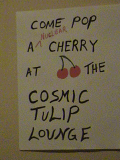 COME POP
A NUCLEAR CHERRY
AT THE
COSMIC
TULIP
LOUNGE